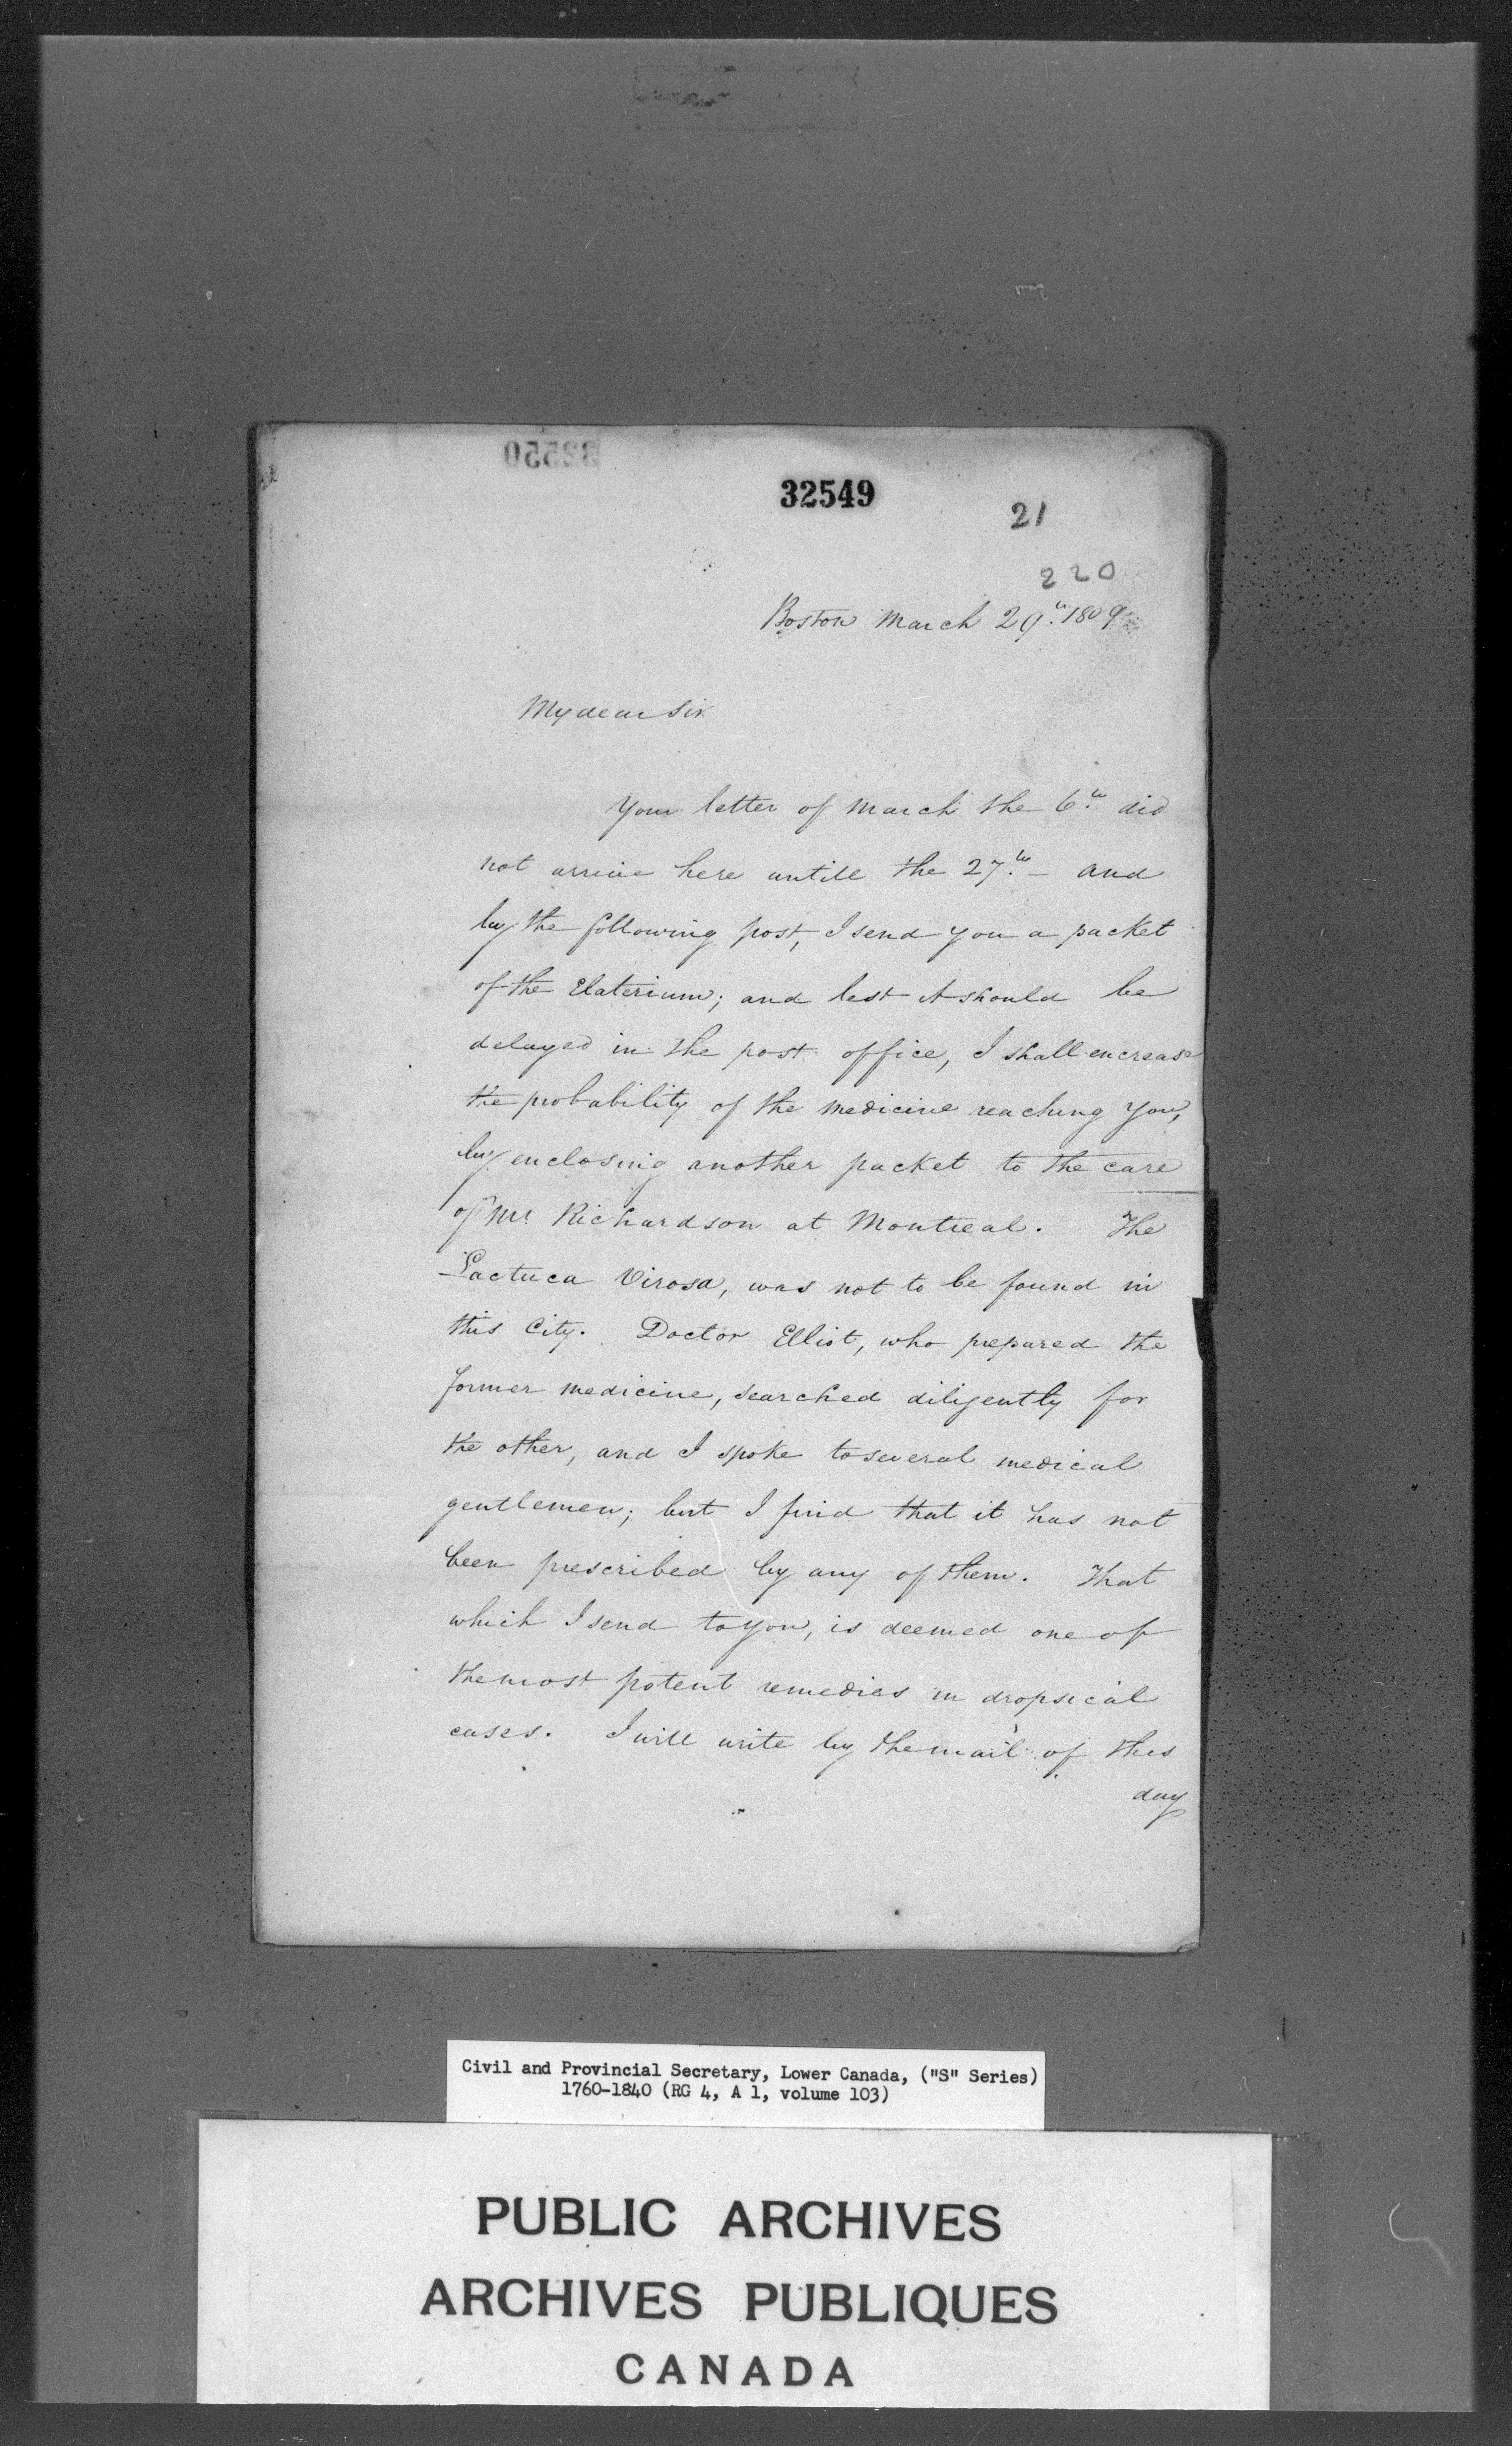 32550
32549
21
220
Boston March 29th. 1809
My dear Sir
Your letter of March the 6th. did
not arrive here untill the 27th. – and
by the following post, I send you a packet
of the Elaterium; and lest it should be
delayed in the post office, I shall encrease
the probability of the medicine reaching you,
by enclosing another packet to the care
of Mr. Richardson at Montreal. The
Lactuca Virosa, was not to be found in
this City. Doctor Elliot, who prepared the
former medicine, searched diligently for
the other, and I spoke to several medical
gentlemen; but I find that it has not
been prescribed by any of them. That
which I send to you, is deemed one of
the most potent remedies in dropsical
cases. I will write by the mail of this
day
Civil and Provincial Secretary, Lower Canada, ("S" Series)
1760-1840 (RG 4, A 1, volume 103)
PUBLIC ARCHIVES
ARCHIVES PUBLIQUES
CANADA